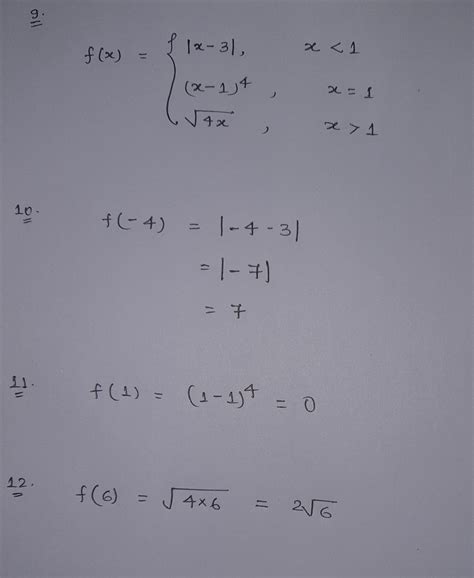 9.
f(x) = { |x-3|, x < 1
(x-1)⁴, x = 1
√4x, x > 1
10. f(-4) = |-4-3|
= |-7|
= 7
11. f(1) = (1-1)⁴ = 0
12. f(6) = √4×6 = 2√6